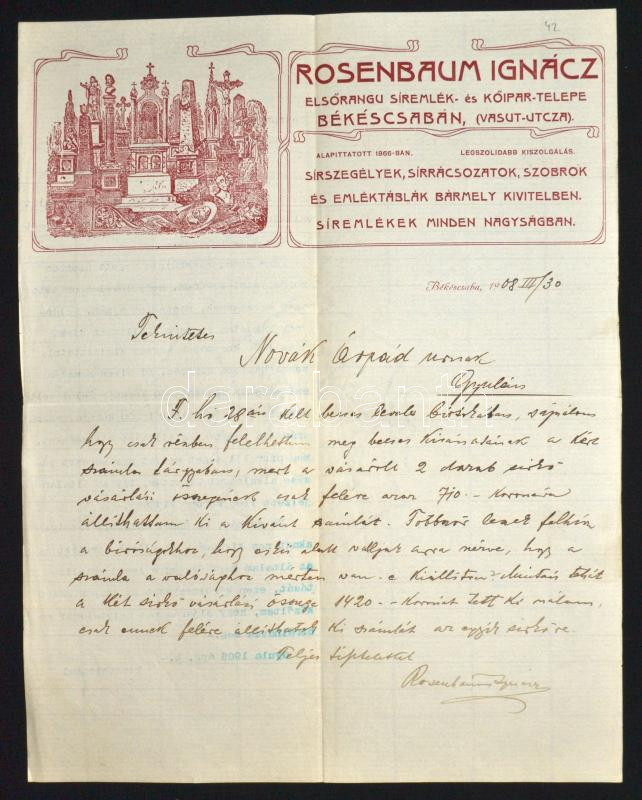 42
ROSENBAUM IGNÁCZ
ELSŐRANGU SÍREMLÉK- és KŐIPAR-TELEPE
BÉKÉSCSABÁN, (VASUT-UTCZA).
ALAPITTATOTT 1866-BAN. LEGSZOLIDABB KISZOLGÁLÁS.
SÍRSZEGÉLYEK, SÍRRÁCSOZATOK, SZOBROK
ÉS EMLÉKTÁBLÁK BÁRMELY KIVITELBEN.
SÍREMLÉKEK MINDEN NAGYSÁGBAN.
Békéscsaba, 1908 III/30
Tekintetes
Novák Árpád urnak
Gyulán
F. hó 28 án kelt becses levele birtokában, sajnálom
hogy csak részben felelhettem meg becses kivánatának a kért
számla tárgyában, mert a vásárolt 2 darab sirkő
vásárlási összegének csak felére azaz 710.- Koronára
állithattam ki a kivánt számlát.
a bírósághoz, hogy eskü alatt valljak arra nézve, hogy a
számla a valósághoz mérten van-e kiállitva. Miután tehát
a két sirkő vásárlási összege 1420.- Koronát tett ki nálam,
csak ennek felére állithatok ki számlát az egyik sirkőre.
Teljes tisztelettel
Rosenbaum Ignácz